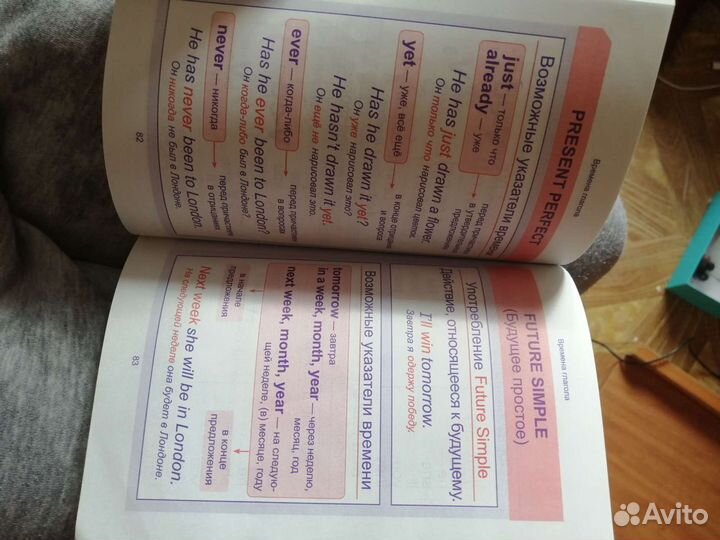 Времена глагола
PRESENT PERFECT
Возможные указатели времени
just — только что
already — уже
перед причастием
в утвердительном
предложении
He has just drawn a flower.
Он только что нарисовал цветок.
yet — уже, всё ещё
в конце отрицания
и вопроса
Has he drawn it yet?
Он уже нарисовал это?
He hasn't drawn it yet.
Он ещё не нарисовал это.
ever — когда-либо
перед причастием
в вопросе
Has he ever been to London?
Он когда-либо был в Лондоне?
never — никогда
перед причастием
в отрицании
He has never been to London.
Он никогда не был в Лондоне.
82
Времена глагола
FUTURE SIMPLE
(Будущее простое)
Употребление Future Simple
Действие, относящееся к будущему.
I'll win tomorrow.
Завтра я одержу победу.
Возможные указатели времени
tomorrow — завтра
in a week, month, year — через неделю,
месяц, год
next week, month, year — на следую-
щей неделе, (в) месяце, году
в начале
предложения
в конце
предложения
Next week she will be in London.
На следующей неделе она будет в Лондоне.
83
Avito